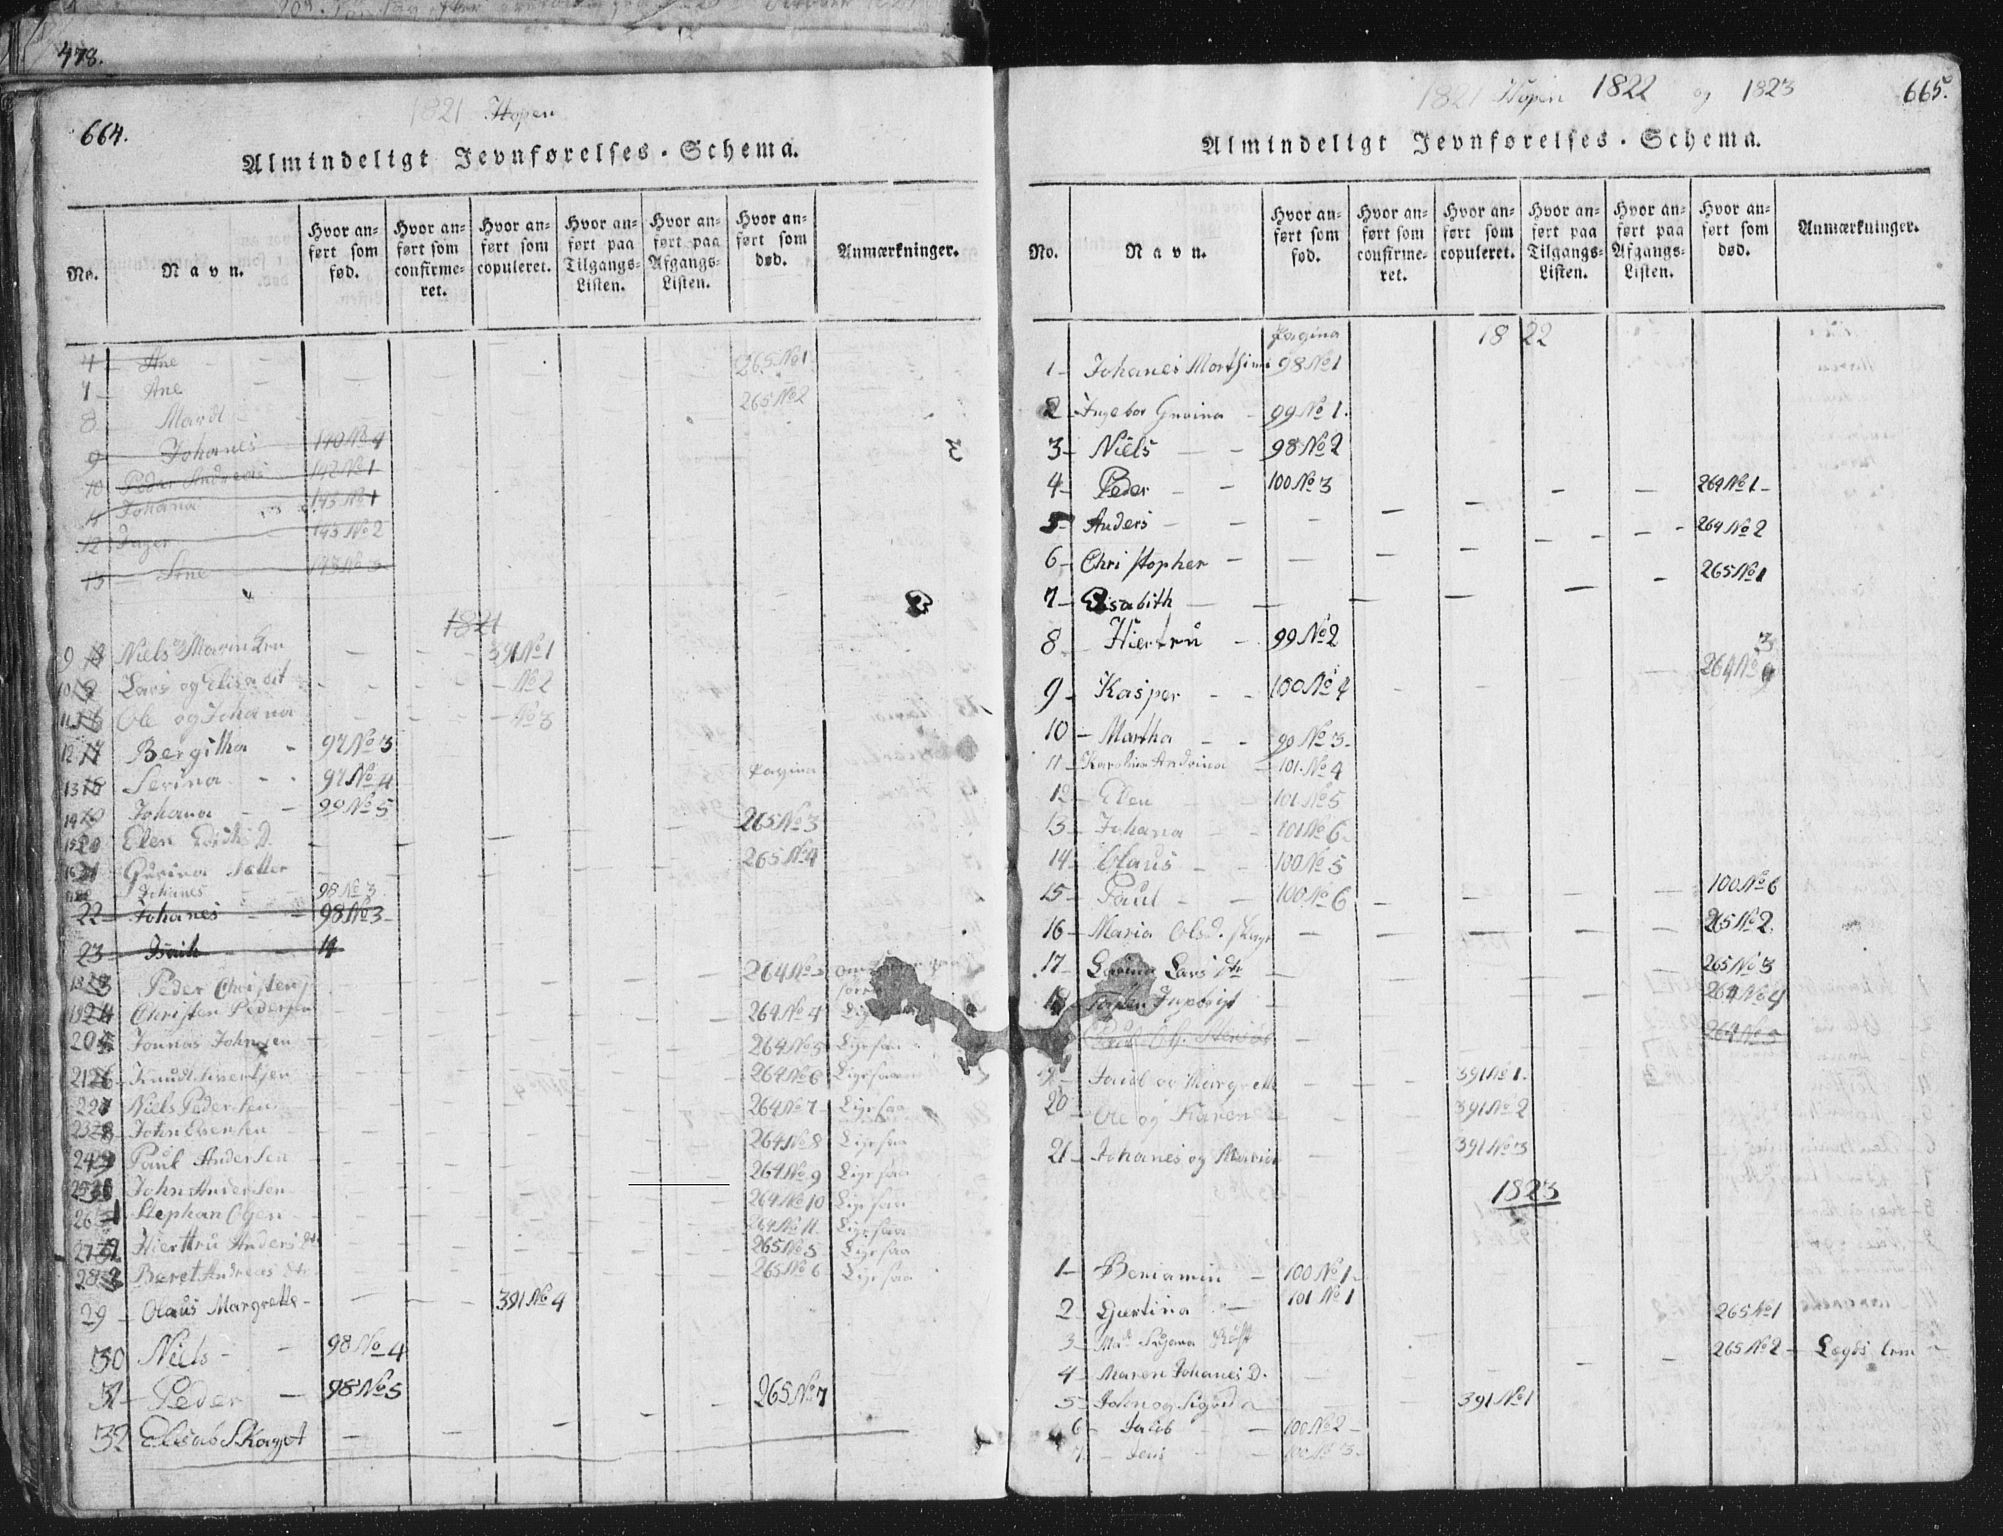 478.
664.
1821 Hopen
Almindeligt Jevnførelses-Schema.
No.
Navn.
Hvor anført som fød.
Hvor anført som confirmeret.
Hvor anført som copuleret.
Hvor anført paa Tilgangs-Listen.
Hvor anført paa Afgangs-Listen.
Hvor anført som død.
Anmærkninger.
4 Ane 265 No 1
7 Ane 265 No 2
8 Mardt
9 Johanes 140 No 4
10 Peder Andreas 142 No 1
11 Johana 145 No 1
12 Inger 145 No 2
13 Ane
1821
9 Niels 391 No 1
10 Lars og No 2
11 Ole og Johana No 3
12 Bergitha 97 No 3
13 Serina 97 No 4
Pagina
14 Johana 99 No 5
15 20 Elen 265 No 3
16 21 Gurina 265 No 4
Johanes 98 No 3
22 Johanes 98 No 3
23
18 23 Peder Christen 264 No 3
19 24 Christen Pedersen 264 No 4
20 25 Jonnas Johnsen 264 No 5 Ligesaa
21 26 Knudt Sivertsen 264 No 6 Ligesaa
22 27 Niels Pedersen 264 No 7 Ligesaa
23 28 John Evensen 264 No 8 Ligesaa
24 29 Paul Andersen 264 No 9 Ligesaa
25 30 John Andersen 264 No 10 Ligesaa
26 31 Stephan Olsen 264 No 11 Ligesaa
27 Hierttru Anders dtr 265 No 5 Ligesaa
28 Beret Andreas dtr 265 No 6 Ligesaa
29 Olaus Margrette 391 No 4
30 Niels 98 No 4
31 Peder 98 No 5 265 No 7
32 Elisab Skaget
1821 Hopen 1822 og 1823
665.
Almindeligt Jevnførelses-Schema.
No.
Navn.
Hvor anført som fød.
Hvor anført som confirmeret.
Hvor anført som copuleret.
Hvor anført paa Tilgangs-Listen.
Hvor anført paa Afgangs-Listen.
Hvor anført som død.
Anmærkninger.
Pagina 1822
1 Johanes 98 No 1
2 Ingebor Gurina 99 No 1.
3 Niels 98 No 2
4 Peder 100 No 3
5 Anders 264 No 1
6 Christopher 264 No 2
7 Elisabith 265 No 1
8 Hiertru 99 No 2
9 Kasper 100 No 4 264 No 3
10 Martha 99 No 3
11 Karolina Andrina 101 No 4
12 Elen 101 No 5
13 Johana 101 No 6
14 Olaus 100 No 5
15 Paul 100 No 6 100 No 6
16 Maria Olsd. 265 No 2
17 Lars dtr 265 No 3
18 264 No 4
264 No 5
Jacob og Margrette 391 No 1.
20 Ole og Karen 391 No 2
21 Johanes og 391 No 3
1823
1 Beniamin 100 No 1
2 Gjertina 101 No 1
3 265 No 1
4 Maren Johanes D. 265 No 2 Lægds lem
5 John og Sigrid 391 No 1
6 Jakob 100 No 2
7 Jens 100 No 3